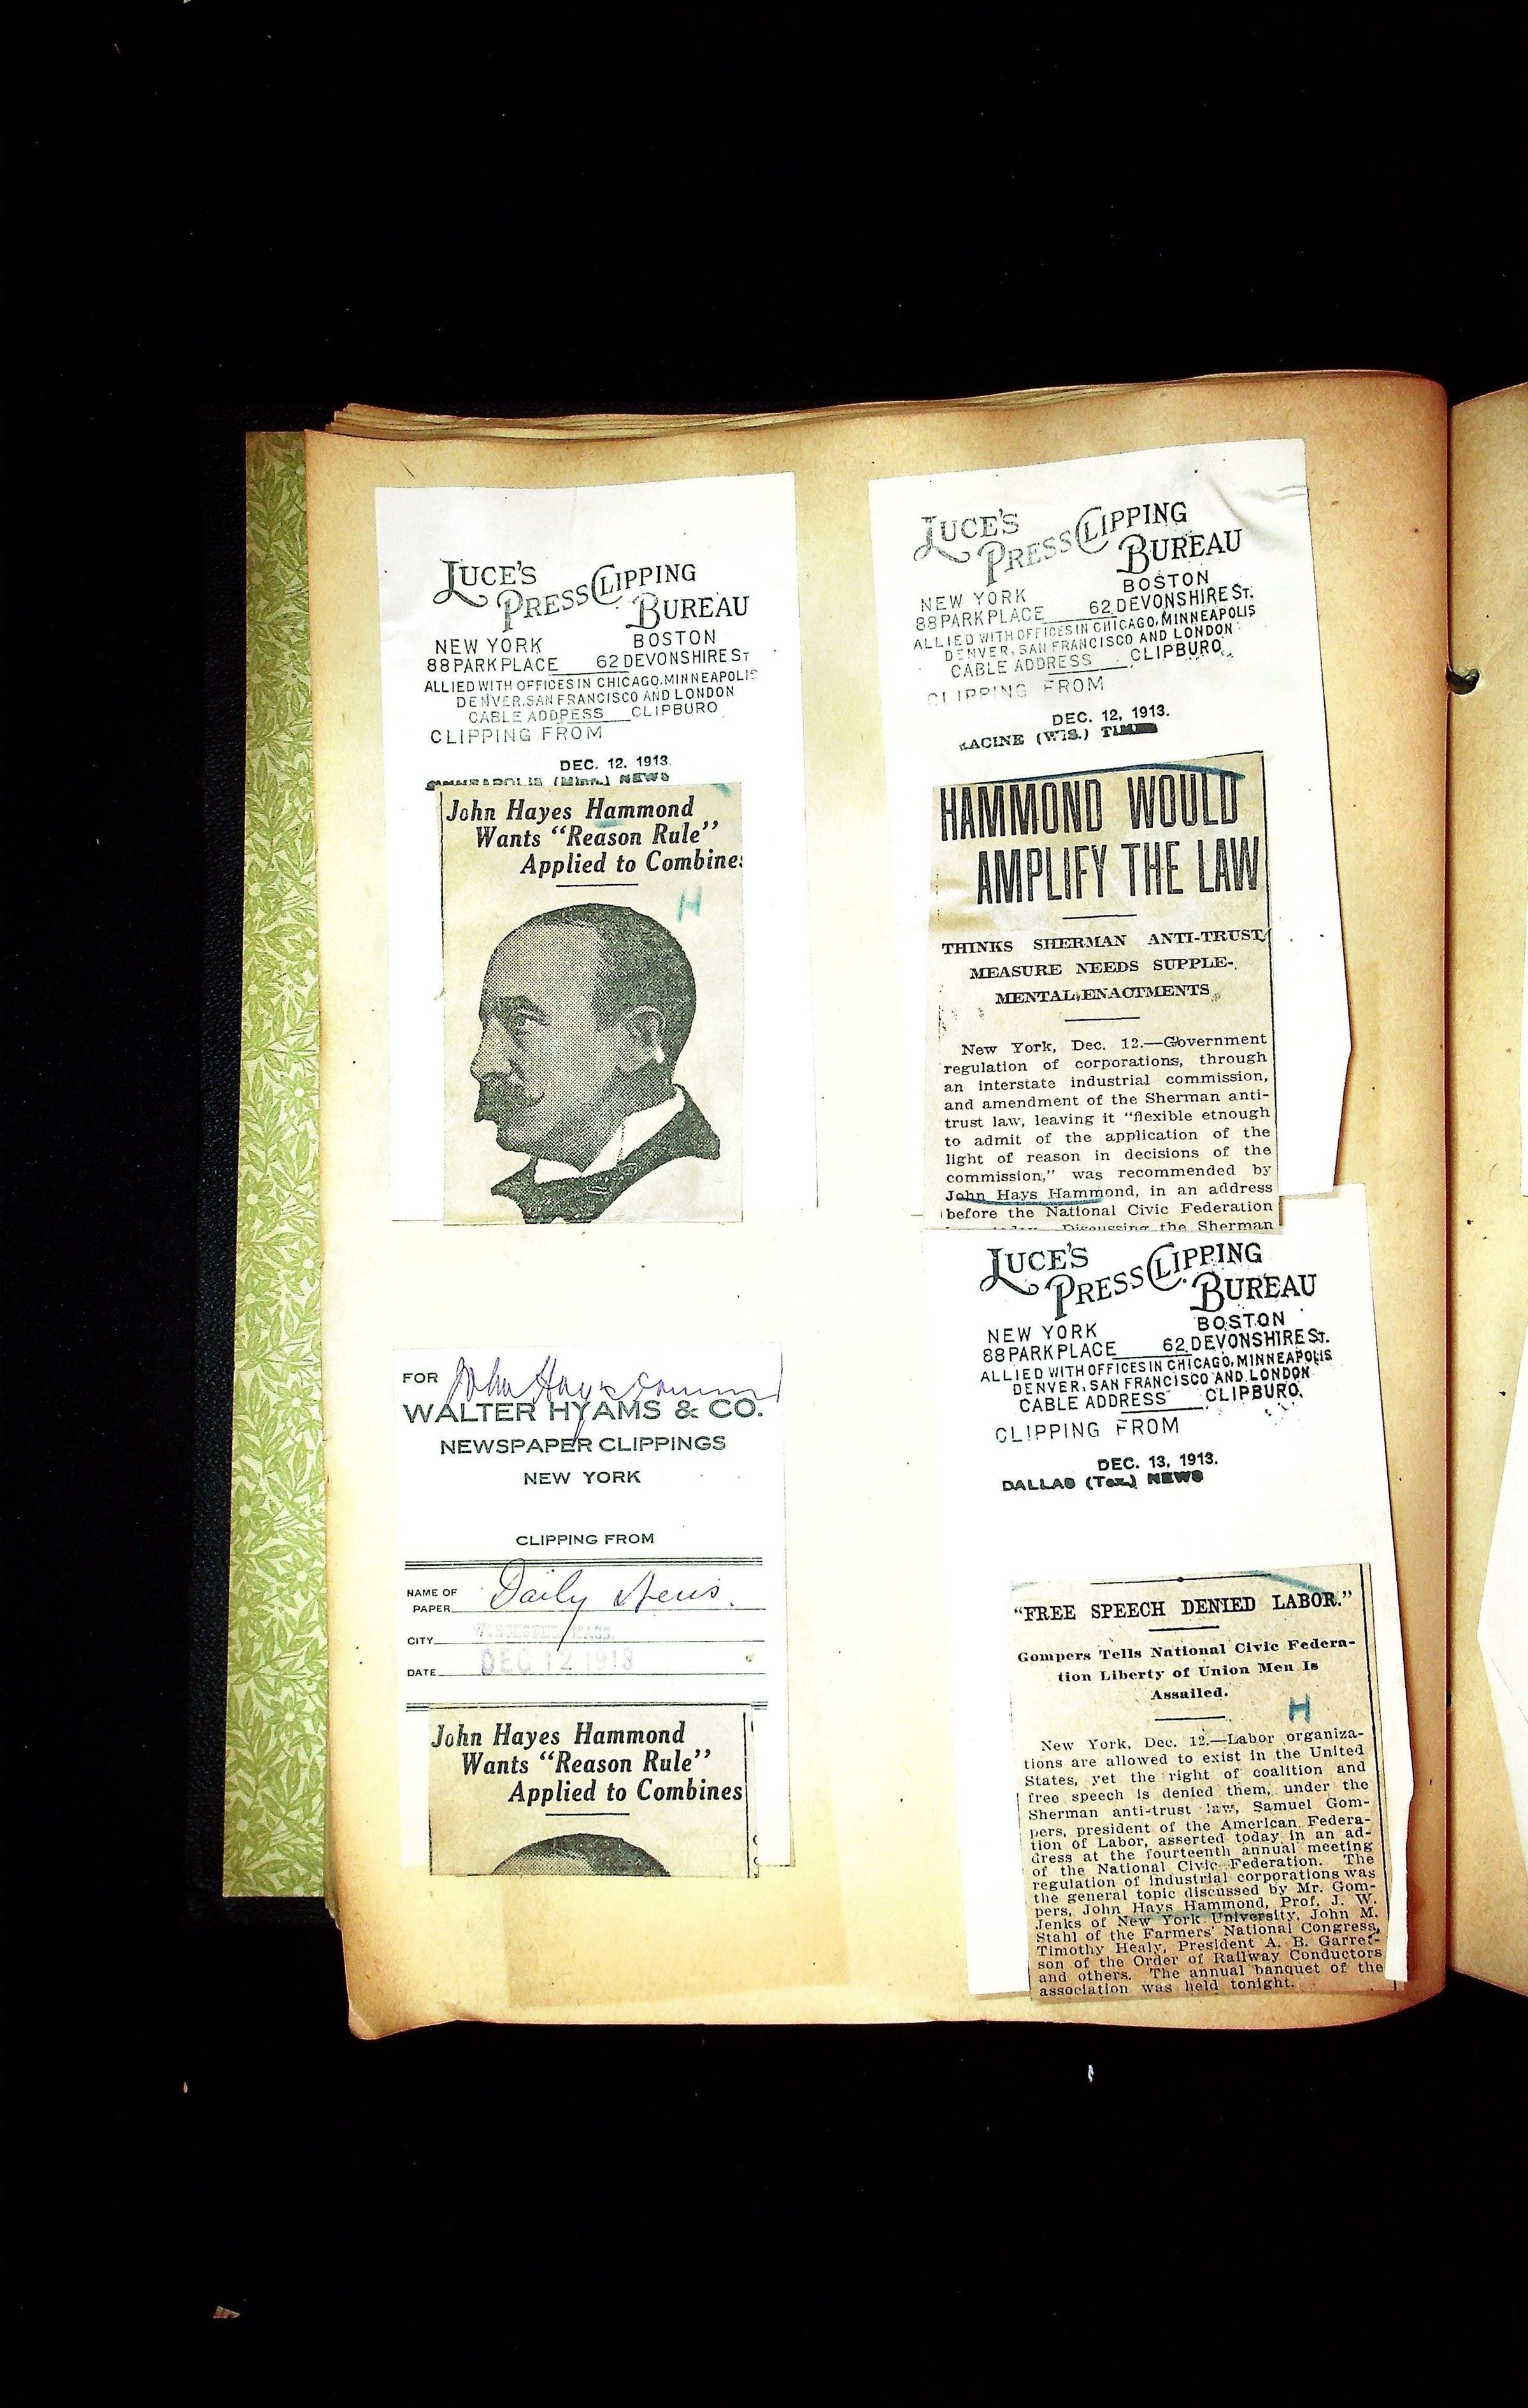 LUCE'S
PRESS CLIPPING
BUREAU
NEW YORK BOSTON
88 PARK PLACE 62 DEVONSHIRE ST
ALLIED WITH OFFICES IN CHICAGO. MINNEAPOLIS
DENVER. SAN FRANCISCO AND LONDON
CABLE ADDRESS CLIPBURO
CLIPPING FROM
DEC. 12. 1913.
(Minn.) NEWS
John Hayes Hammond
Wants “Reason Rule”
Applied to Combines
H
FOR John Hays
WALTER HYAMS & CO.
NEWSPAPER CLIPPINGS
NEW YORK
CLIPPING FROM
NAME OF
PAPER Daily News.
CITY WORCESTER, MASS.
DATE DEC 12 1913
John Hayes Hammond
Wants “Reason Rule”
Applied to Combines
LUCE'S
PRESS CLIPPING
BUREAU
NEW YORK BOSTON
88 PARK PLACE 62 DEVONSHIRE ST.
ALLIED WITH OFFICES IN CHICAGO, MINNEAPOLIS
DENVER, SAN FRANCISCO AND LONDON
CABLE ADDRESS CLIPBURO
CLIPPING FROM
DEC. 12, 1913.
RACINE (WIS.) TIMES
HAMMOND WOULD
AMPLIFY THE LAW
THINKS SHERMAN ANTI-TRUST
MEASURE NEEDS SUPPLE-
MENTAL ENACTMENTS
New York, Dec. 12.—Government
regulation of corporations, through
an interstate industrial commission,
and amendment of the Sherman anti-
trust law, leaving it “flexible etnough
to admit of the application of the
light of reason in decisions of the
commission,” was recommended by
John Hays Hammond, in an address
before the National Civic Federation
Discussing the Sherman
LUCE'S
PRESS CLIPPING
BUREAU
NEW YORK BOSTON
88 PARK PLACE 62 DEVONSHIRE ST.
ALLIED WITH OFFICES IN CHICAGO, MINNEAPOLIS
DENVER, SAN FRANCISCO AND LONDON
CABLE ADDRESS CLIPBURO.
CLIPPING FROM
DEC. 13, 1913.
DALLAS (Tex.) NEWS
“FREE SPEECH DENIED LABOR.”
Gompers Tells National Civic Federa-
tion Liberty of Union Men Is
Assailed.
H
New York, Dec. 12.—Labor organiza-
tions are allowed to exist in the United
States, yet the right of coalition and
free speech is denied them, under the
Sherman anti-trust law, Samuel Gom-
pers, president of the American Federa-
tion of Labor, asserted today in an ad-
dress at the fourteenth annual meeting
of the National Civic Federation. The
regulation of industrial corporations was
the general topic discussed by Mr. Gom-
pers, John Hays Hammond, Prof. J. W.
Jenks of New York University, John M.
Stahl of the Farmers' National Congress,
Timothy Healy, President A. B. Garret-
son of the Order of Railway Conductors
and others. The annual banquet of the
association was held tonight.